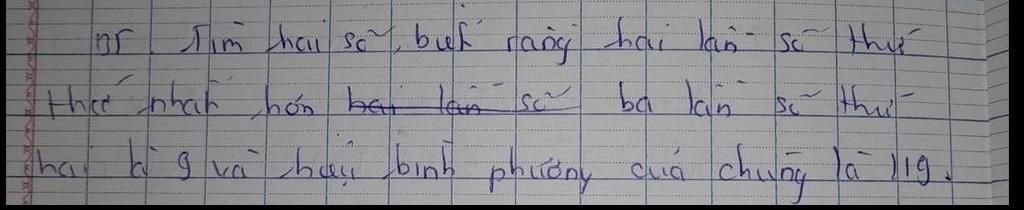 Tìm hai số, biết rằng hai lần số thứ
thứ nhất hơn hai lần số ba lần số thứ
hai là 9 và hiệu bình phương của chúng là 119.